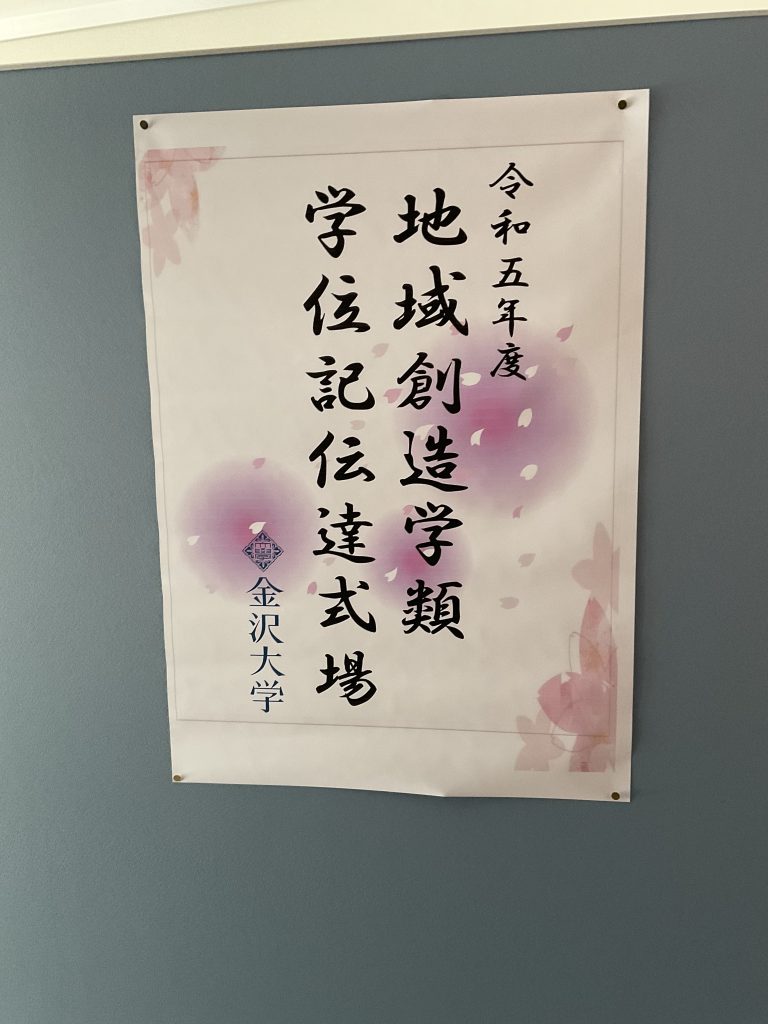 令和五年度
地域創造学類
学位記伝達式場
金沢大学